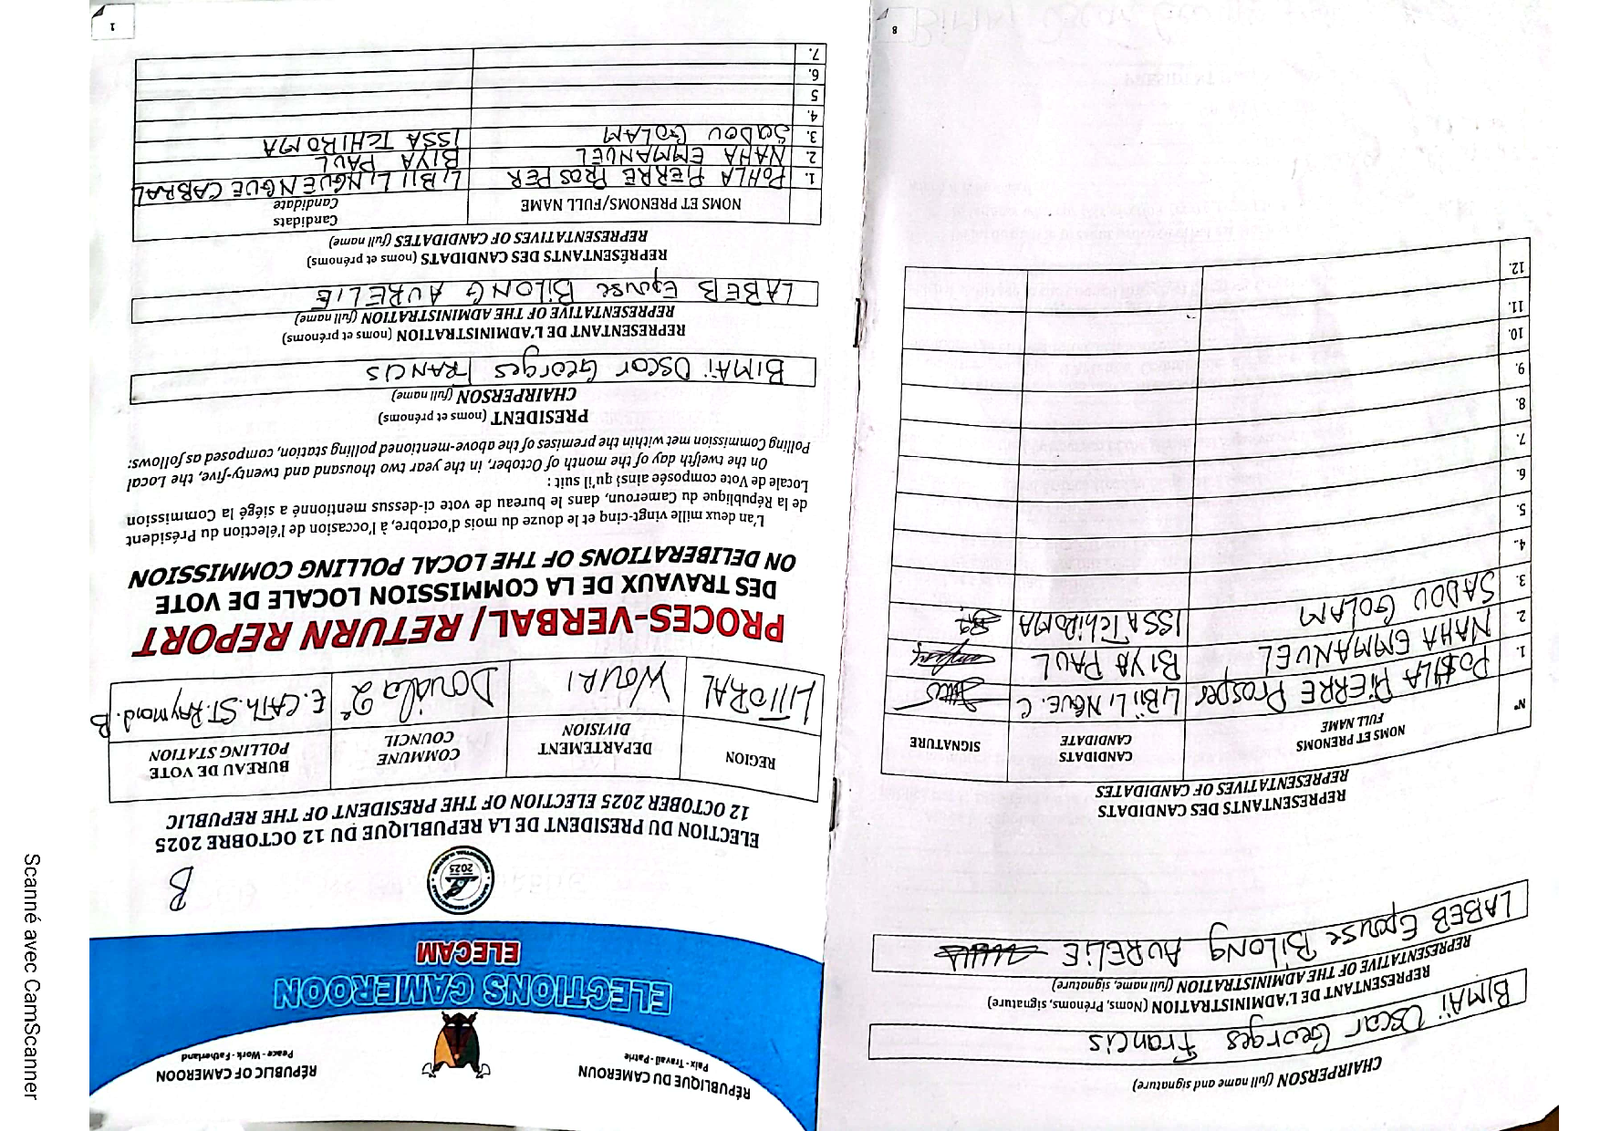 RÉPUBLIQUE DU CAMEROUN
Paix - Travail - Patrie
RÉPUBLIC OF CAMEROON
Peace - Work - Fatherland
ELECTIONS CAMEROON
ELECAM
2025
B
ELECTION DU PRESIDENT DE LA REPUBLIQUE DU 12 OCTOBRE 2025
12 OCTOBER 2025 ELECTION OF THE PRESIDENT OF THE REPUBLIC
REGION
DEPARTEMENT
DIVISION
COMMUNE
COUNCIL
BUREAU DE VOTE
POLLING STATION
LITTORAL
WOURI
Douala 2e
E. CATH. ST. Raymond. B
PROCES-VERBAL/ RETURN REPORT
DES TRAVAUX DE LA COMMISSION LOCALE DE VOTE
ON DELIBERATIONS OF THE LOCAL POLLING COMMISSION
L'an deux mille vingt-cinq et le douze du mois d'octobre, à l'occasion de l'élection du Président
de la République du Cameroun, dans le bureau de vote ci-dessus mentionné a siégé la Commission
Locale de Vote composée ainsi qu'il suit :
On the twelfth day of the month of October, in the year two thousand and twenty-five, the Local
Polling Commission met within the premises of the above-mentioned polling station, composed as follows:
PRESIDENT (noms et prénoms)
CHAIRPERSON (full name)
BIMAÏ OSCAR Georges FRANCIS
REPRESENTANT DE L'ADMINISTRATION (noms et prénoms)
REPRESENTATIVE OF THE ADMINISTRATION (full name)
LABEB Epouse BILONG AURELIE
REPRÉSENTANTS DES CANDIDATS (noms et prénoms)
REPRESENTATIVES OF CANDIDATES (full name)
NOMS ET PRENOMS/FULL NAME
Candidats
Candidate
1. POHLA PIERRE PROSPER LIBII LI NGUENGUE CABRAL
2. NAHA EMMANUEL BIYA PAUL
3. SADOU GOLAM ISSA TCHIROMA
4.
5
6.
7.
1
CHAIRPERSON (full name and signature)
BIMAÏ OSCAR Georges Francis
REPRESENTANT DE L'ADMINISTRATION (Noms, Prénoms, signature)
REPRESENTATIVE OF THE ADMINISTRATION (full name, signature)
LABEB Epouse BILONG AURELIE
REPRESENTANTS DES CANDIDATS
REPRESENTATIVES OF CANDIDATES
N°
NOMS ET PRENOMS
FULL NAME
CANDIDATS
CANDIDATE
SIGNATURE
1. POHLA PIERRE Prosper LIBII LI NGUE. C
2. NAHA EMMANUEL BIYA PAUL
3. SADOU GOLAM ISSA TCHIROMA
4.
5.
6.
7.
8.
9.
10.
11.
12.
8
Scanné avec CamScanner